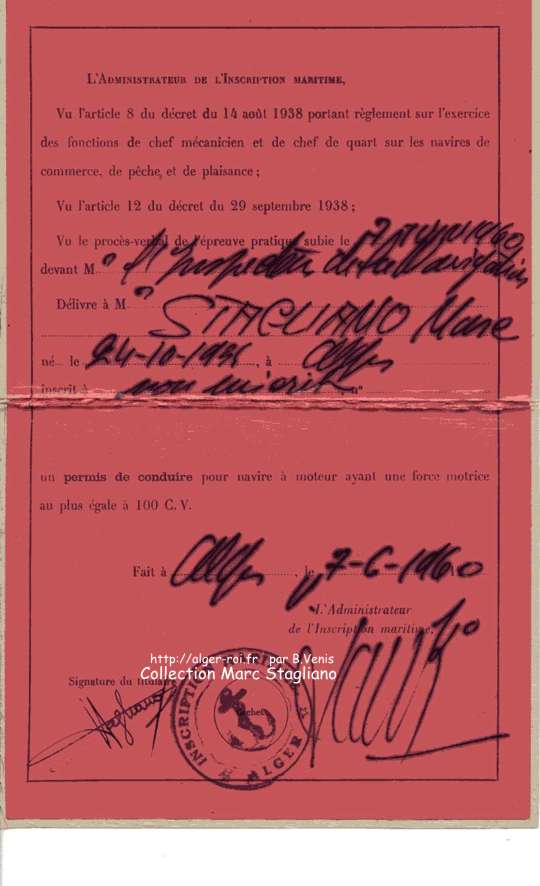 L'ADMINISTRATEUR DE L'INSCRIPTION MARITIME,
Vu l'article 8 du décret du 14 août 1938 portant règlement sur l'exercice
des fonctions de chef mécanicien et de chef de quart sur les navires de
commerce, de pêche, et de plaisance ;
Vu l'article 12 du décret du 29 septembre 1938 ;
Vu le procès-verbal de l'épreuve pratique subie le 7 1960
devant M r l'Inspecteur de la Navigation
Délivre à M r
STAGLIANO Marc
né le 24-10-1931, à Alger
inscrit à non inscrit, n°
un permis de conduire pour navire à moteur ayant une force motrice
au plus égale à 100 C. V.
Fait à Alger, le 7-6-1960
L'Administrateur
de l'Inscription maritime,
http://alger-roi.fr par B.Venis
Collection Marc Stagliano
Signature du titulaire
Cachet
INSCRIPTION MARITIME
ALGER